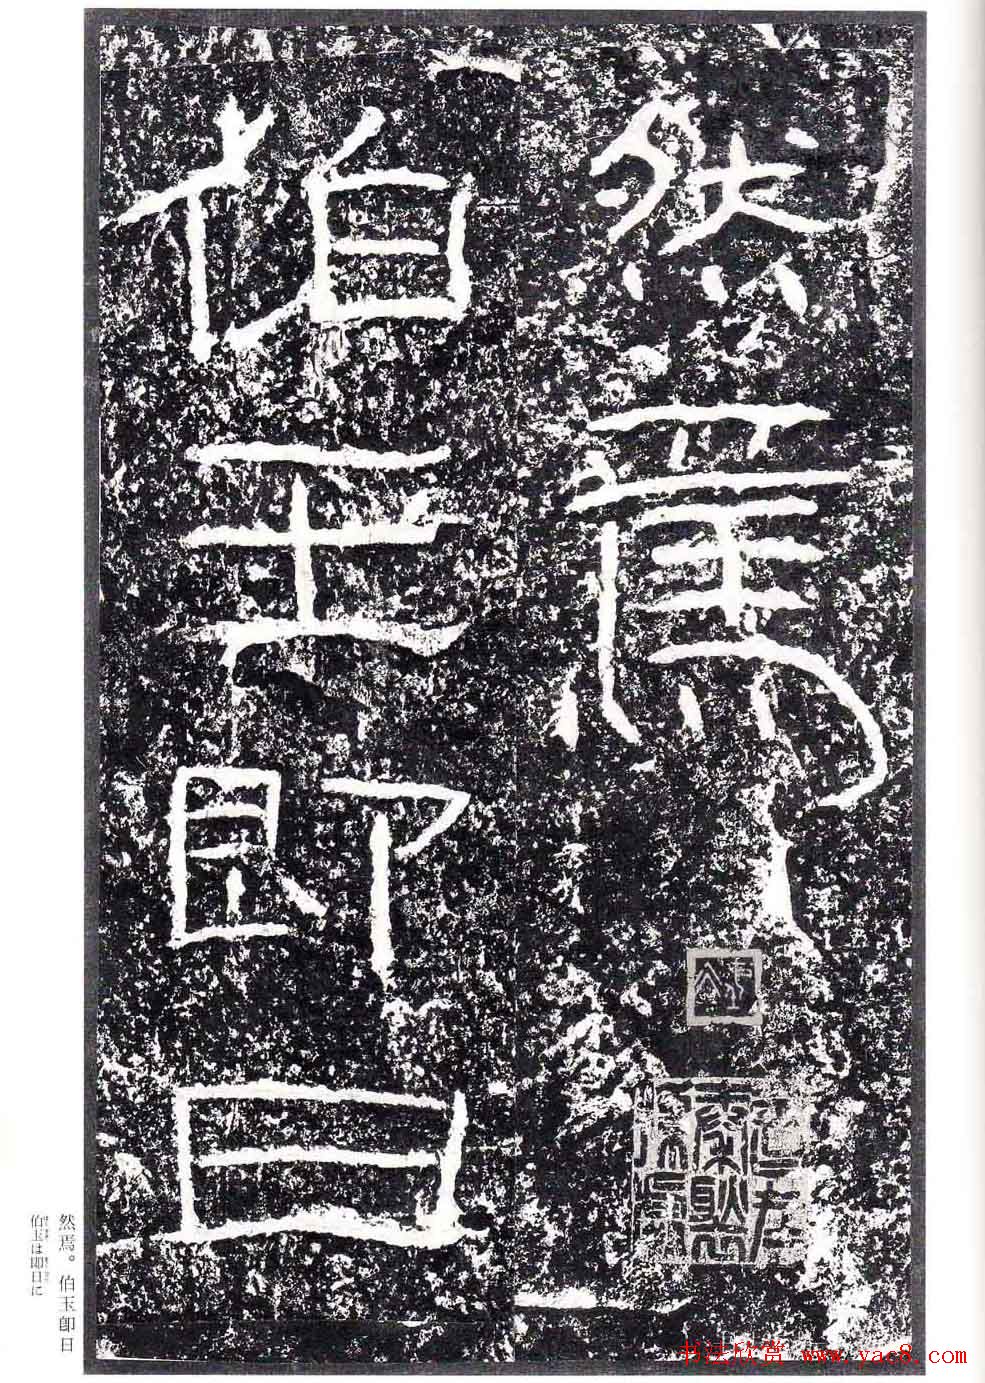 然焉
伯玉即日
然焉。伯玉即日
伯玉は即日に
书法欣赏 www.yac8.com